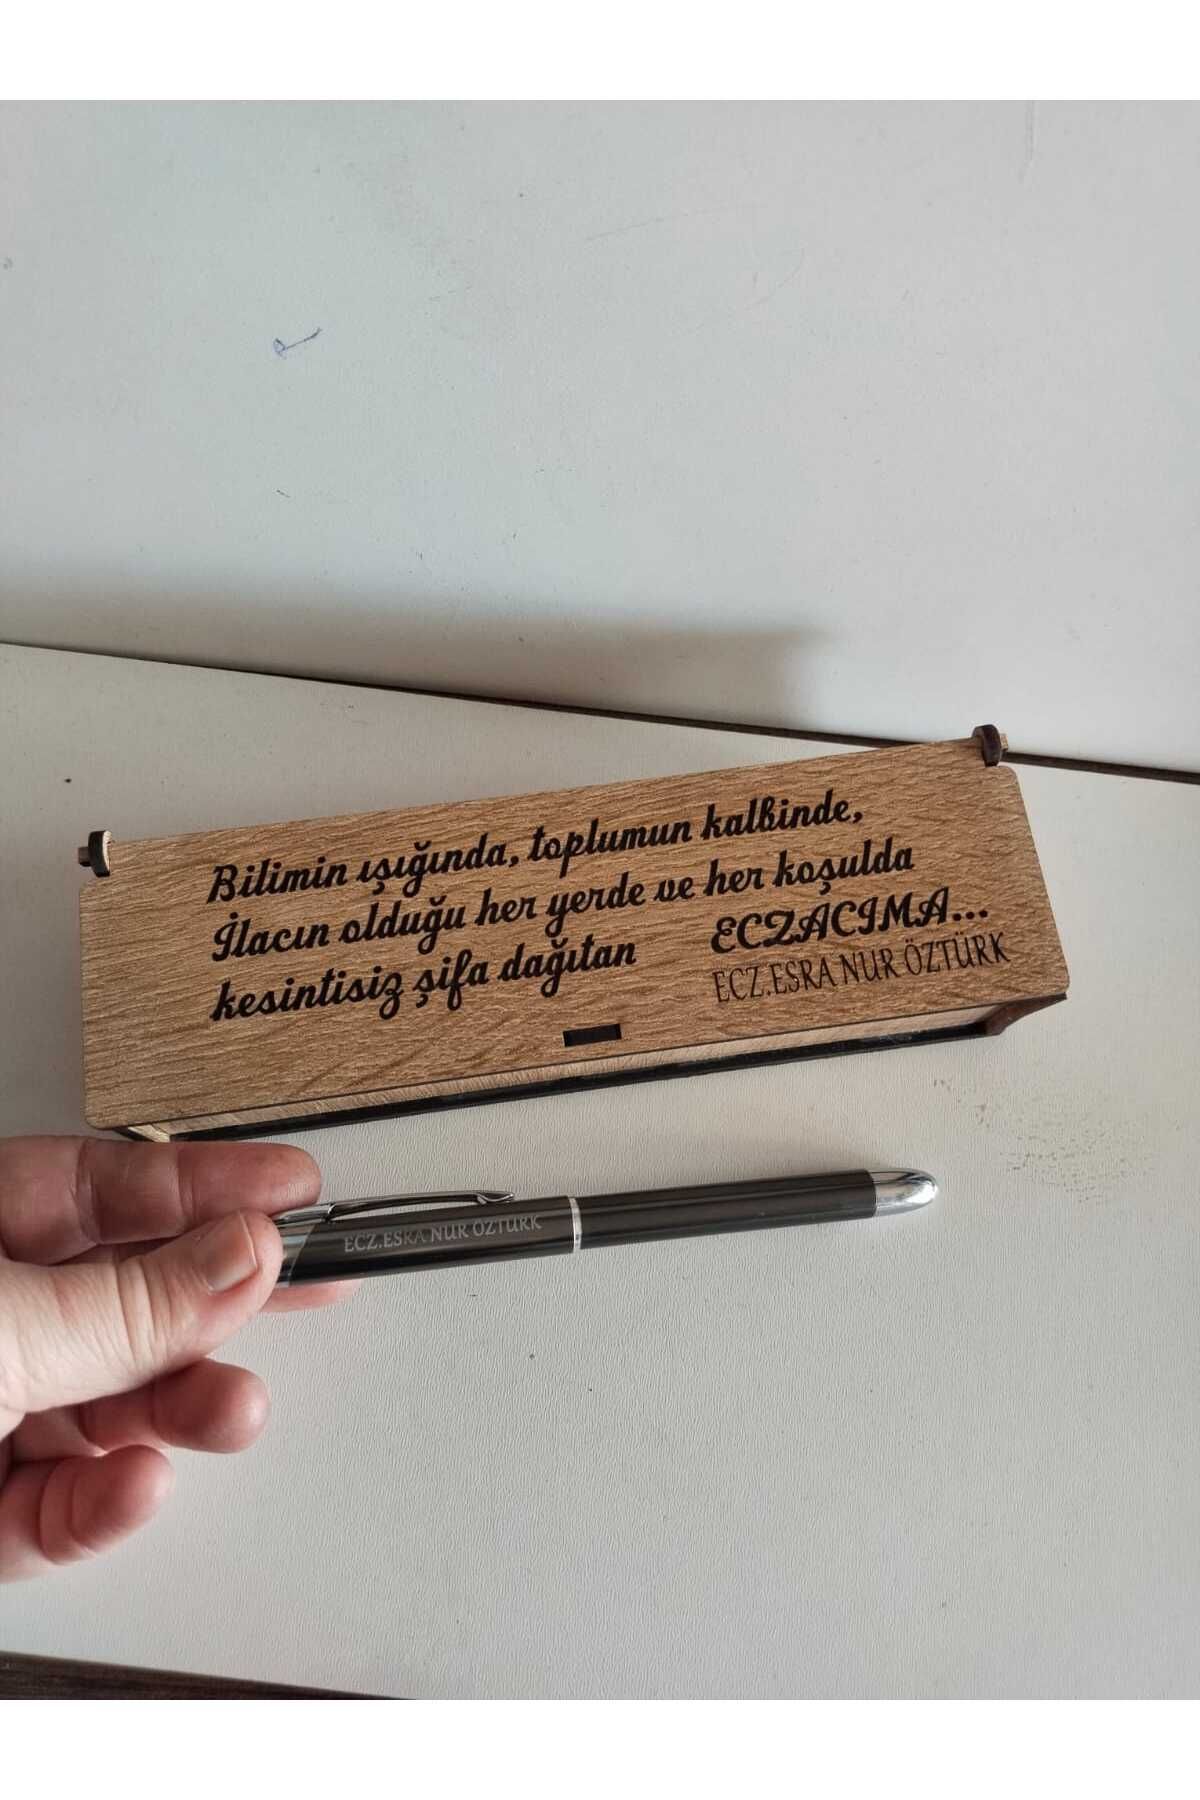 Bilimin ışığında, toplumun kalbinde,
İlacın olduğu her yerde ve her koşulda
kesintisiz şifa dağıtan ECZACIMA...
ECZ.ESRA NUR ÖZTÜRK
ECZ.ESRA NUR ÖZTÜRK